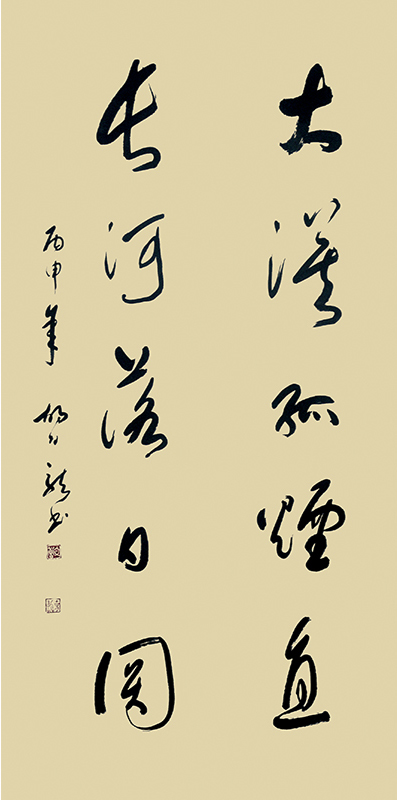 大漠孤煙直
長河落日圓
丙申年
書